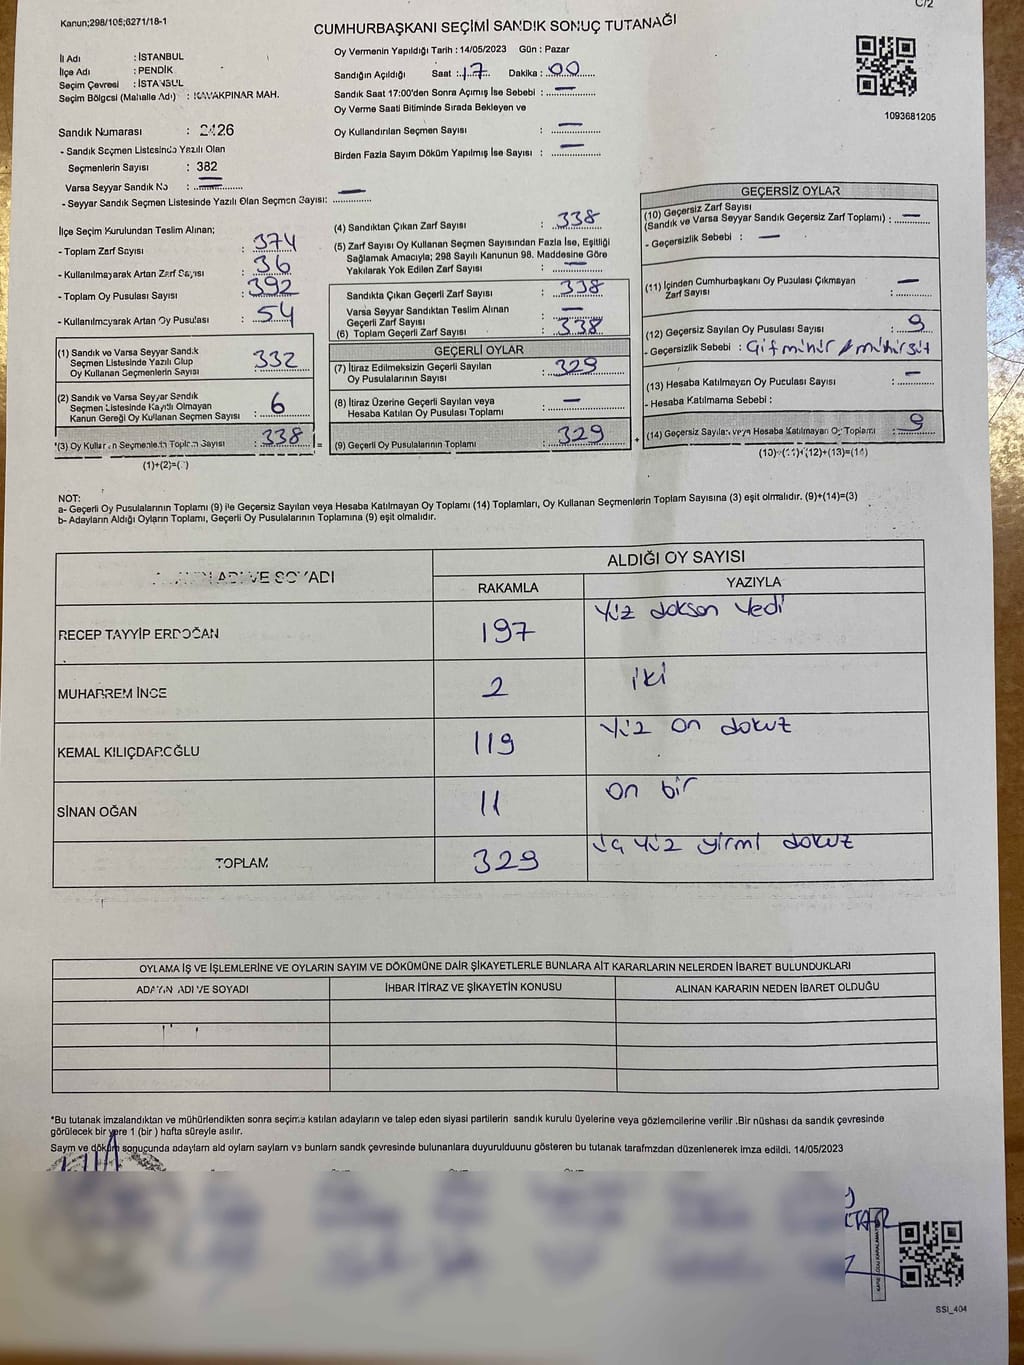 C/2
Kanun;298/105;6271/18-1
CUMHURBAŞKANI SEÇİMİ SANDIK SONUÇ TUTANAĞI
İl Adı : İSTANBUL
İlçe Adı : PENDİK
Seçim Çevresi : İSTANBUL
Seçim Bölgesi (Mahalle Adı) : KAVAKPINAR MAH.
Oy Vermenin Yapıldığı Tarih : 14/05/2023 Gün : Pazar
Sandığın Açıldığı Saat : 17 Dakika : 00
Sandık Saat 17:00'den Sonra Açımış İse Sebebi : —
Oy Verme Saati Bitiminde Sırada Bekleyen ve
Oy Kullandırılan Seçmen Sayısı : —
Birden Fazla Sayım Döküm Yapılmış İse Sayısı : —
1093681205
Sandık Numarası : 2426
- Sandık Seçmen Listesinde Yazılı Olan
Seçmenlerin Sayısı : 382
Varsa Seyyar Sandık No : —
- Seyyar Sandık Seçmen Listesinde Yazılı Olan Seçmen Sayısı: —
İlçe Seçim Kurulundan Teslim Alınan;
- Toplam Zarf Sayısı : 374
- Kullanılmayarak Artan Zarf Sayısı : 36
- Toplam Oy Pusulası Sayısı : 392
- Kullanılmayarak Artan Oy Pusulası : 54
(1) Sandık ve Varsa Seyyar Sandık
Seçmen Listesinde Yazılı Olup
Oy Kullanan Seçmenlerin Sayısı : 332
(2) Sandık ve Varsa Seyyar Sandık
Seçmen Listesinde Kayıtlı Olmayan
Kanun Gereği Oy Kullanan Seçmen Sayısı : 6
(3) Oy Kullanan Seçmenlerin Toplam Sayısı : 338 =
(1)+(2)=(3)
(4) Sandıktan Çıkan Zarf Sayısı : 338
(5) Zarf Sayısı Oy Kullanan Seçmen Sayısından Fazla İse, Eşitliği
Sağlamak Amacıyla; 298 Sayılı Kanunun 98. Maddesine Göre
Yakılarak Yok Edilen Zarf Sayısı : —
Sandıkta Çıkan Geçerli Zarf Sayısı : 338
Varsa Seyyar Sandıktan Teslim Alınan
Geçerli Zarf Sayısı : —
(6) Toplam Geçerli Zarf Sayısı : 338
GEÇERLİ OYLAR
(7) İtiraz Edilmeksizin Geçerli Sayılan
Oy Pusulalarının Sayısı : 329
(8) İtiraz Üzerine Geçerli Sayılan veya
Hesaba Katılan Oy Pusulası Toplamı : —
(9) Geçerli Oy Pusulalarının Toplamı : 329 +
GEÇERSİZ OYLAR
(10) Geçersiz Zarf Sayısı
(Sandık ve Varsa Seyyar Sandık Geçersiz Zarf Toplamı) : —
- Geçersizlik Sebebi : —
(11) İçinden Cumhurbaşkanı Oy Pusulası Çıkmayan
Zarf Sayısı : —
(12) Geçersiz Sayılan Oy Pusulası Sayısı : 9
- Geçersizlik Sebebi :
(13) Hesaba Katılmayan Oy Pusulası Sayısı : —
- Hesaba Katılmama Sebebi :
(14) Geçersiz Sayılan veya Hesaba Katılmayan Oy Toplamı : 9
(10)+(11)+(12)+(13)=(14)
NOT:
a- Geçerli Oy Pusulalarının Toplamı (9) ile Geçersiz Sayılan veya Hesaba Katılmayan Oy Toplamı (14) Toplamları, Oy Kullanan Seçmenlerin Toplam Sayısına (3) eşit olmalıdır. (9)+(14)=(3)
b- Adayların Aldığı Oyların Toplamı, Geçerli Oy Pusulalarının Toplamına (9) eşit olmalıdır.
ADI VE SOYADI
ALDIĞI OY SAYISI
RAKAMLA YAZIYLA
RECEP TAYYİP ERDOĞAN 197 Yüz doksan Yedi
MUHARREM İNCE 2 iki
KEMAL KILIÇDAROĞLU 119 Yüz on dokuz
SİNAN OĞAN 11 on bir
TOPLAM 329 üç yüz yirmi dokuz
OYLAMA İŞ VE İŞLEMLERİNE VE OYLARIN SAYIM VE DÖKÜMÜNE DAİR ŞİKAYETLERLE BUNLARA AİT KARARLARIN NELERDEN İBARET BULUNDUKLARI
ADAYIN ADI VE SOYADI İHBAR İTİRAZ VE ŞİKAYETİN KONUSU ALINAN KARARIN NEDEN İBARET OLDUĞU
*Bu tutanak imzalandıktan ve mühürlendikten sonra seçime katılan adayların ve talep eden siyasi partilerin sandık kurulu üyelerine veya gözlemcilerine verilir .Bir nüshası da sandık çevresinde
görülecek bir yere 1 (bir ) hafta süreyle asılır.
Sayım ve döküm sonucunda adaylarn ald oylarn saylarn ve bunlarn sandk çevresinde bulunanlara duyurulduunu gösteren bu tutanak tarafmzdan düzenlenerek imza edildi. 14/05/2023
SSI_404